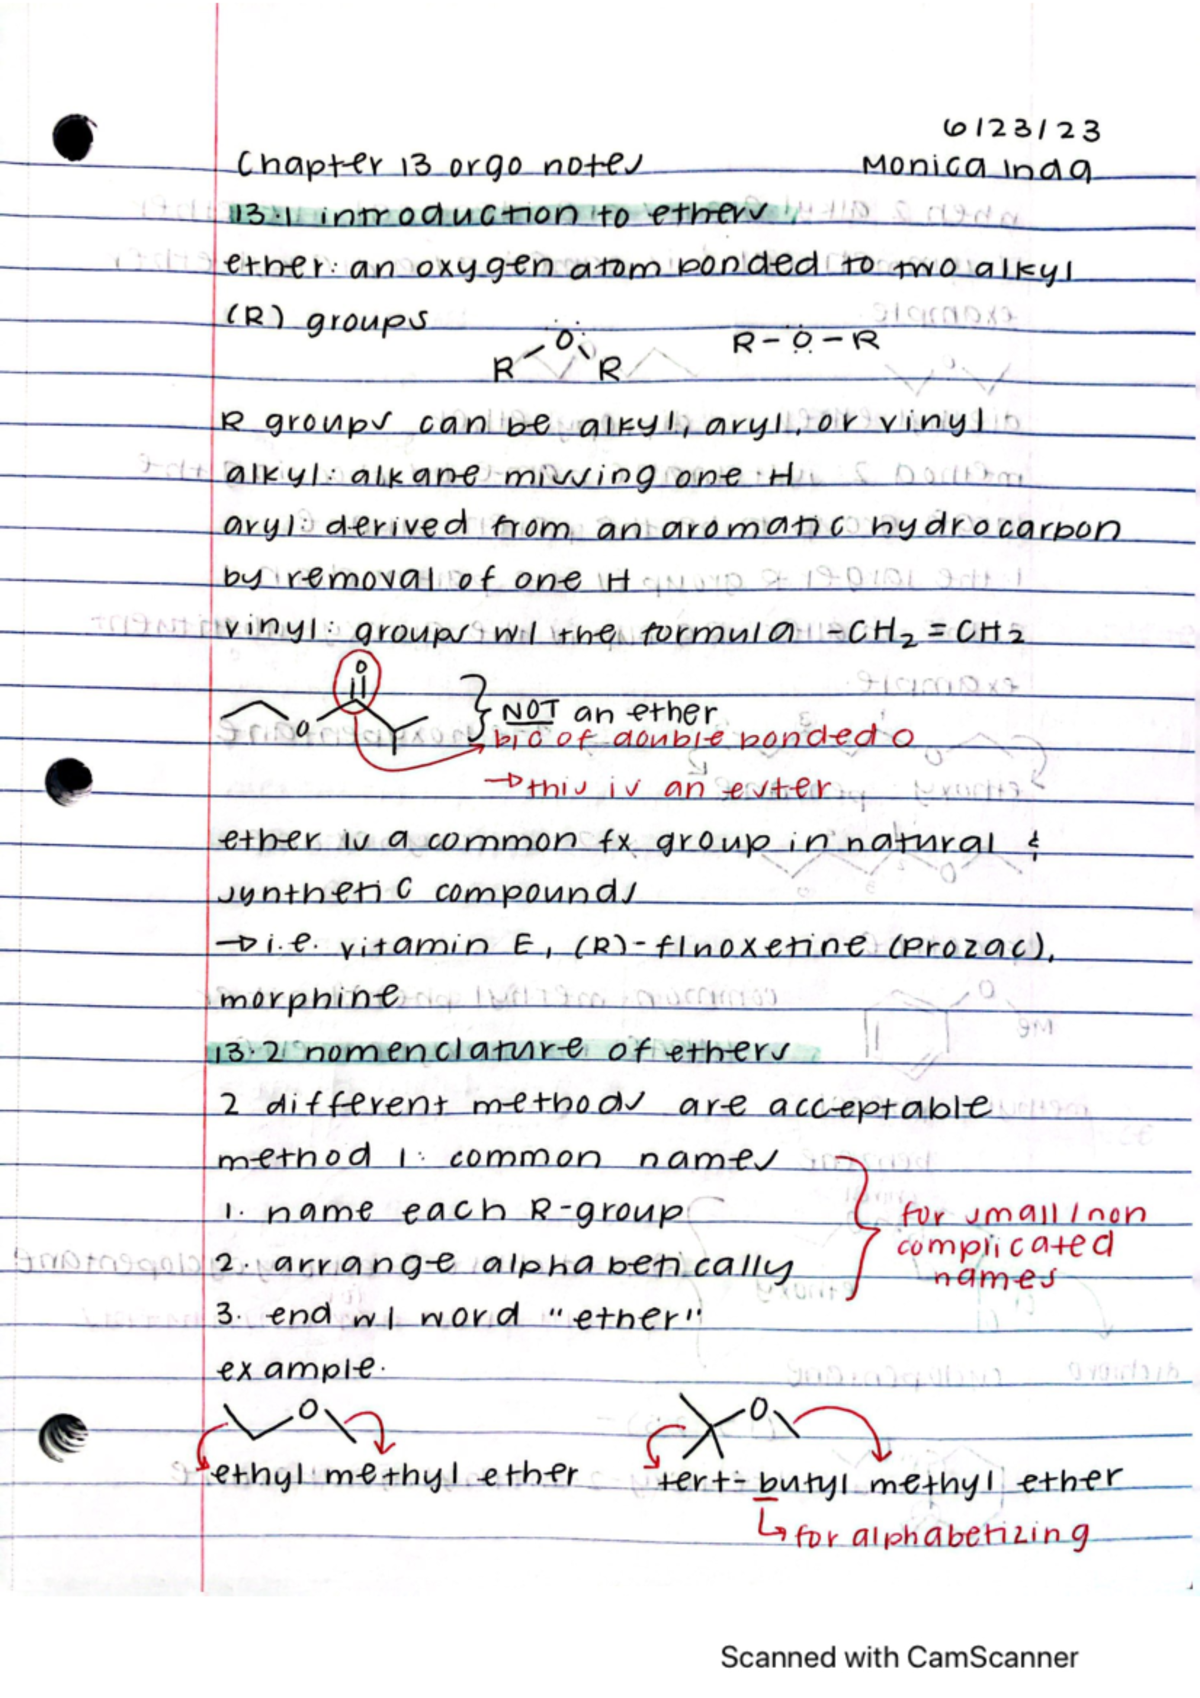 6/23/23
Chapter 13 orgo notes Monica Inda
13.1 introduction to ethers
ether: an oxygen atom bonded to two alkyl
(R) groups
O
R R
R-O-R
R groups can be alkyl, aryl, or vinyl
alkyl: alkane missing one H
aryl: derived from an aromatic hydrocarbon
by removal of one H
vinyl: groups w/ the formula -CH2=CH2
O
O
NOT an ether
b/c of double bonded O
→ this is an ester
ether is a common fx group in natural &
synthetic compounds
→ i.e. vitamin E, (R)-flnoxetine (Prozac),
morphine
13.2 nomenclature of ethers
2 different methods are acceptable
method 1: common names
1. name each R-group
2. arrange alphabetically
3. end w/ word "ether"
for small/non
complicated
names
example.
O O
ethyl methyl ether tert-butyl methyl ether
↳ for alphabetizing
Scanned with CamScanner